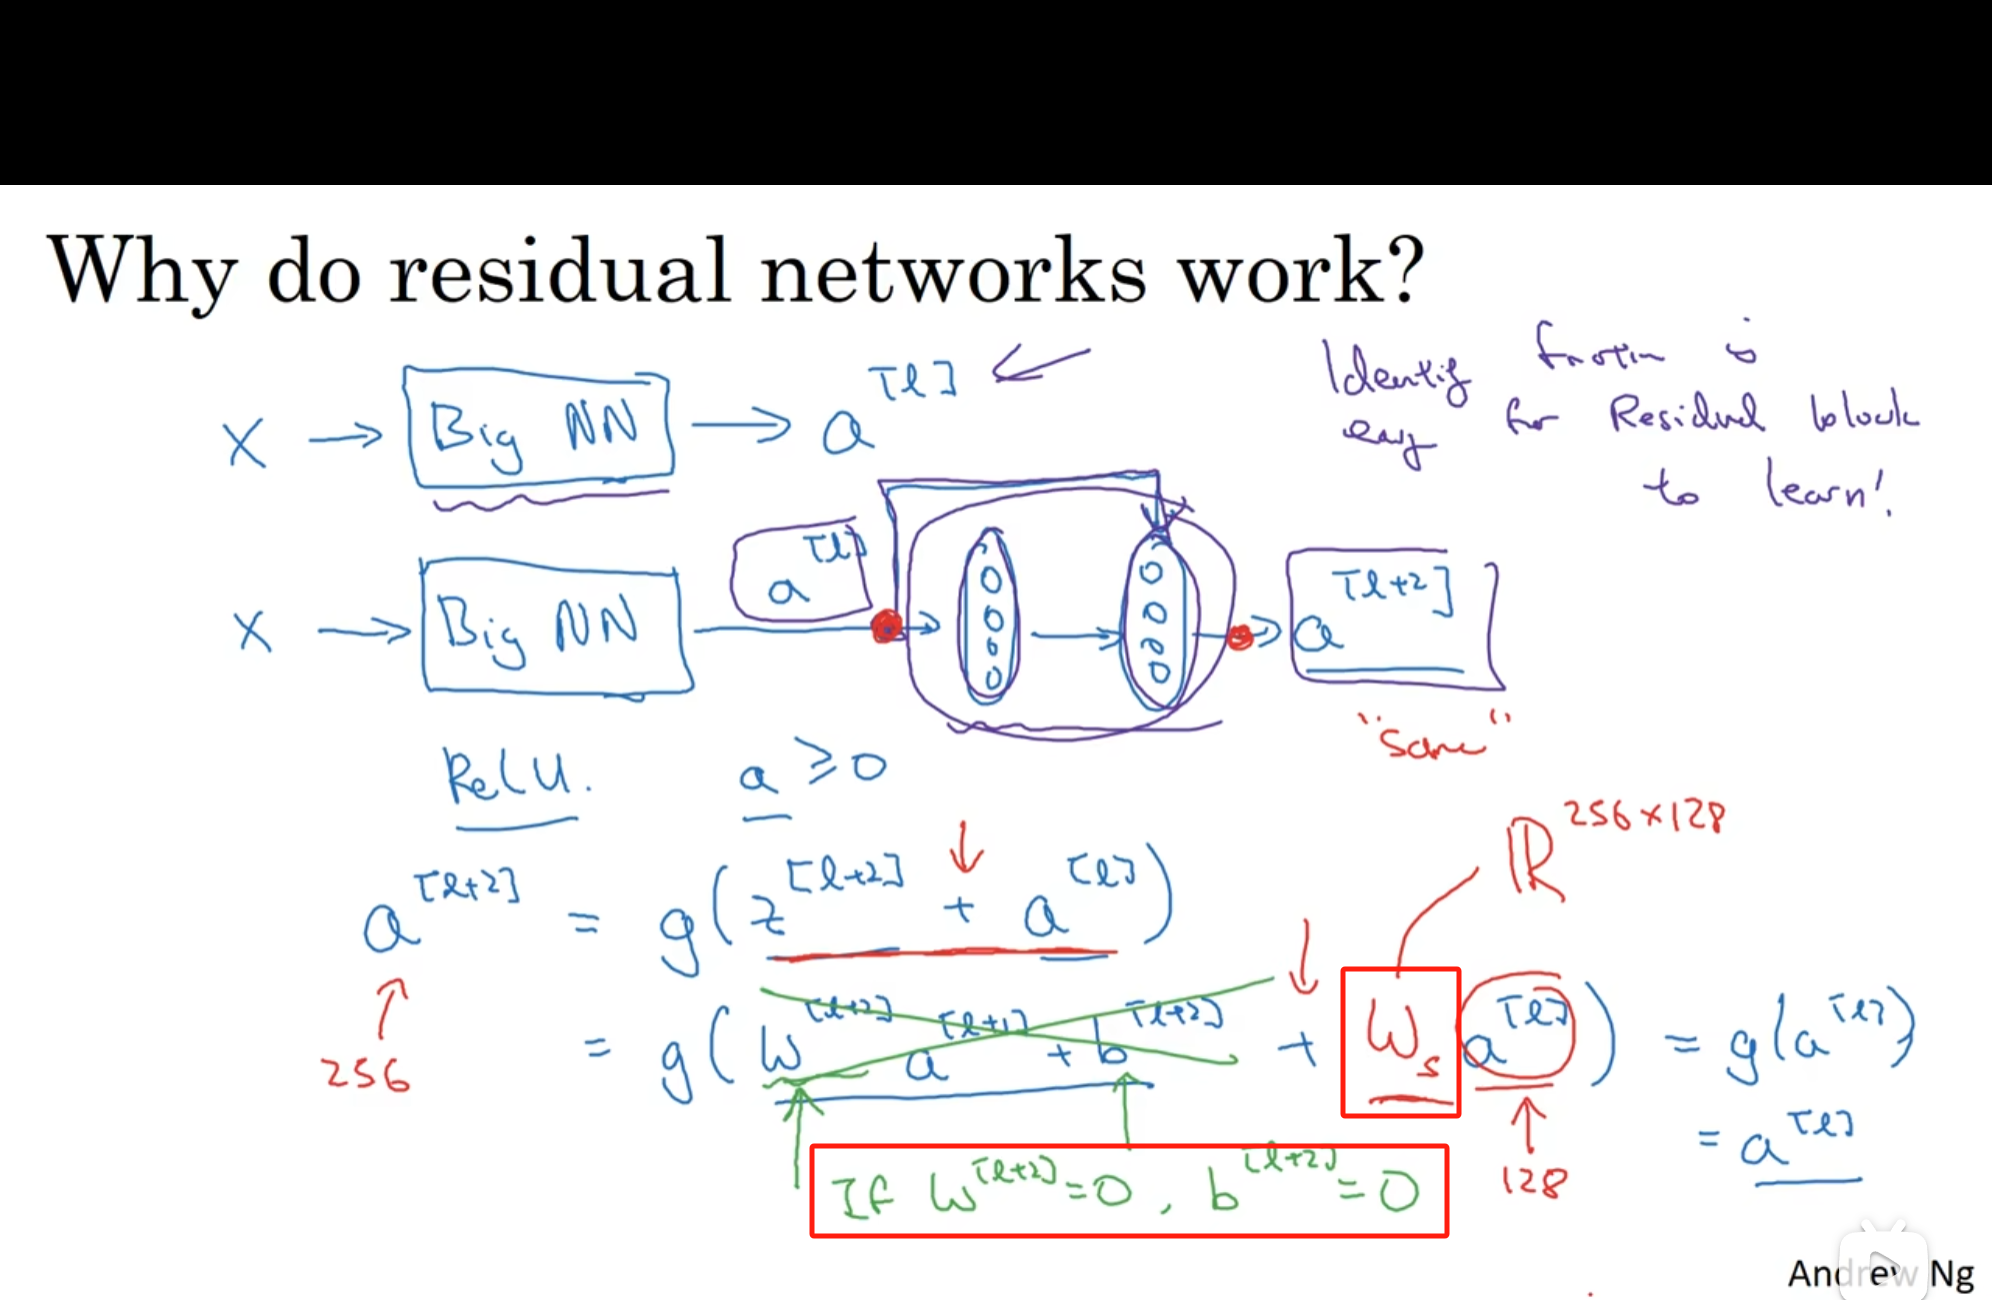 Why do residual networks work?
X → Big NN → a^[l]
Identity function is
easy for Residual block
to learn!
X → Big NN a^[l] → a^[l+2]
"same"
ReLU. a ≥ 0
ℝ^256×128
a^[l+2] = g(z^[l+2] + a^[l])
256
= g(W^[l+2] a^[l+1] + b^[l+2] + W_s a^[l]) = g(a^[l])
= a^[l]
128
If W^[l+2]=0, b^[l+2]=0
Andrew Ng